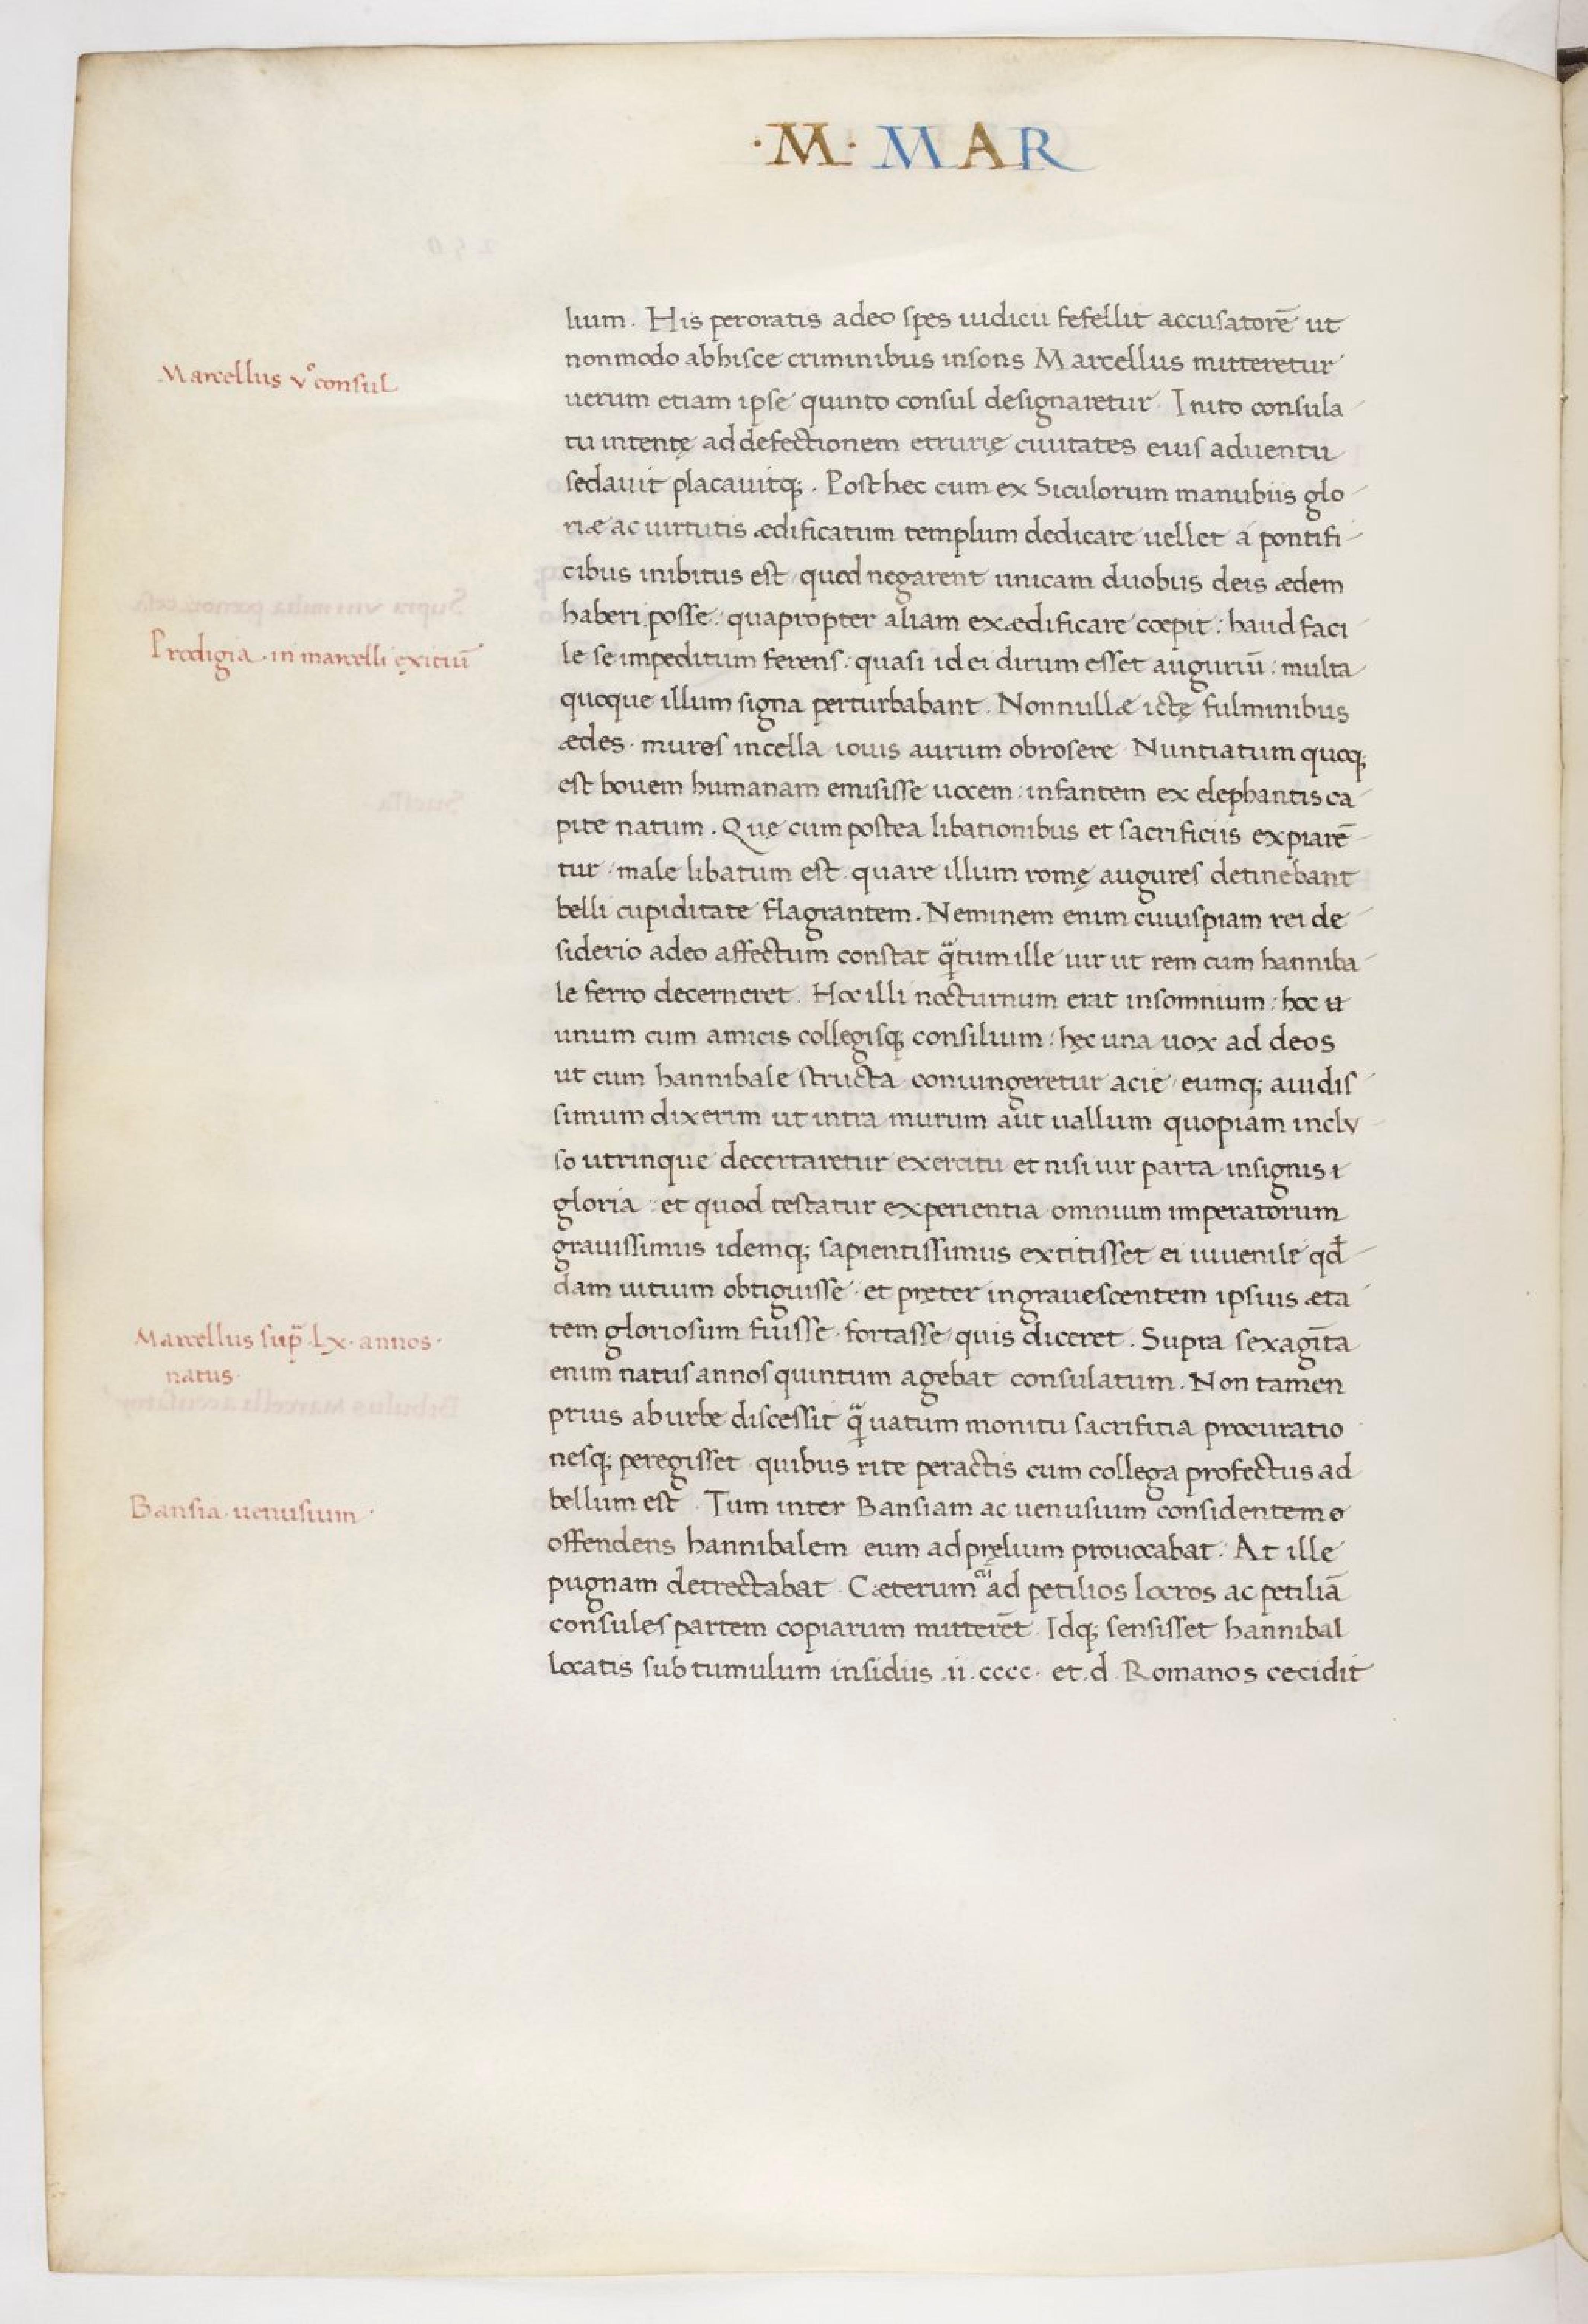 ·M· MAR
lium. His peroratis adeo spes iudicii fefellit accusatorē ut
non modo ab hisce criminibus insons Marcellus mitteretur
Marcellus v° consul
uerum etiam ipse quinto consul designaretur. Inito consula
tu intentę ad defectionem etrurię ciuitates eius aduentu
sedauit placauitq;. Post hec cum ex Siculorum manubiis glo
riæ ac uirtutis ædificatum templum dedicare uellet á pontifi
cibus inibitus est quod negarent unicam duobus deis ædem
haberi posse: quapropter aliam exædificare cœpit: haud faci
Prodigia in marcelli exitiū
le se impeditum ferens: quasi id ei dirum esset auguriū: multa
quoque illum signa perturbabant. Nonnullæ ictę fulminibus
ædes mures in cella iouis aurum obrosere Nuntiatum quoq;
est bouem humanam emisisse uocem: infantem ex elephantis ca
pite natum. Quę cum postea libationibus et sacrificiis expiarē
tur male libatum est quare illum romę augures detinebant
belli cupiditate flagrantem. Neminem enim cuiuspiam rei de
siderio adeo affectum constat q̃tum ille uir ut rem cum hanniba
le ferro decerneret. Hoc illi nocturnum erat insomnium: hoc u
unum cum amicis collegisq; consilium: hęc una uox ad deos
ut cum hannibale structa coniungeretur acie eumq; auidis
simum dixerim ut intra murum aut uallum quopiam inclv
so utrinque decertaretur exercitu et nisi uir parta insignis i
gloria: et quod testatur experientia omnium imperatorum
grauissimus idemq; sapientissimus extitisset ei iuuenile qd̄
dam uitium obtiguisse et pręter ingrauescentem ipsius æta
Marcellus sup̃ Lx annos
natus
tem gloriosum fuisse fortasse quis diceret. Supra sexagīta
enim natus annos quintum agebat consulatum. Non tamen
prius ab urbe discessit q̃ uatum monitu sacrifitia procuratio
nesq; peregisset quibus rite peractis cum collega profectus ad
Bansia uenusium
bellum est Tum inter Bansiam ac uenusium considentem o
offendens hannibalem eum ad pręlium prouocabat. At ille
pugnam detrectabat Cæterum cū ad petilios locros ac petiliā
consules partem copiarum mitterēt Idq; sensisset hannibal
locatis sub tumulum insidiis .ii.cccc. et.d. Romanos cecidit